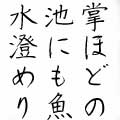 掌ほどの
池にも魚
水澄めり